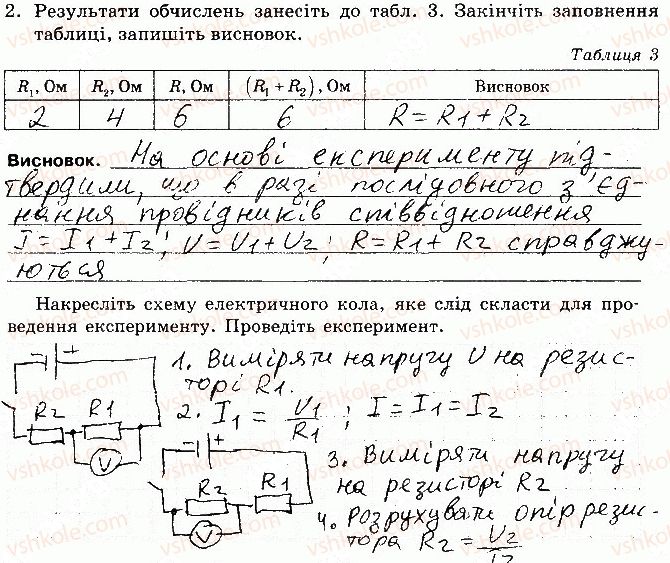 2. Результати обчислень занесіть до табл. 3. Закінчіть заповнення
таблиці, запишіть висновок.
Таблиця 3
R₁, Ом R₂, Ом R, Ом (R₁ + R₂), Ом Висновок
2 4 6 6 R = R1 + R2
Висновок. На основі експерименту під-
твердили, що в разі послідовного з'єд-
нання провідників співвідношення
I = I1 + I2; U = U1 + U2; R = R1 + R2 справджу-
ються
Накресліть схему електричного кола, яке слід скласти для про-
ведення експерименту. Проведіть експеримент.
1. Виміряти напругу U на резис-
торі R1.
2. I1 = U1/R1; I = I1 = I2
R2 R1
V
3. Виміряти напругу
на резисторі R2
R2 R1
V
4. Розрухувати опір резис-
тора R2 = U2/I2
vshkole.com